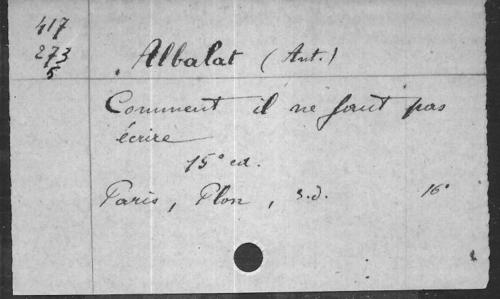 417
273
5
Albalat (Ant.)
Comment il ne faut pas
écrire
15° ed.
Paris, Plon, s.d. 16°